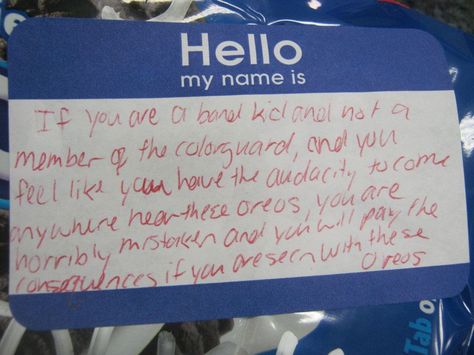 Hello
my name is
If you are a band kid and not a
member of the colorguard, and you
feel like you have the audacity to come
anywhere near these oreos, you are
horribly mistaken and you will pay the
consequences if you are seen with these
oreos
Tab o